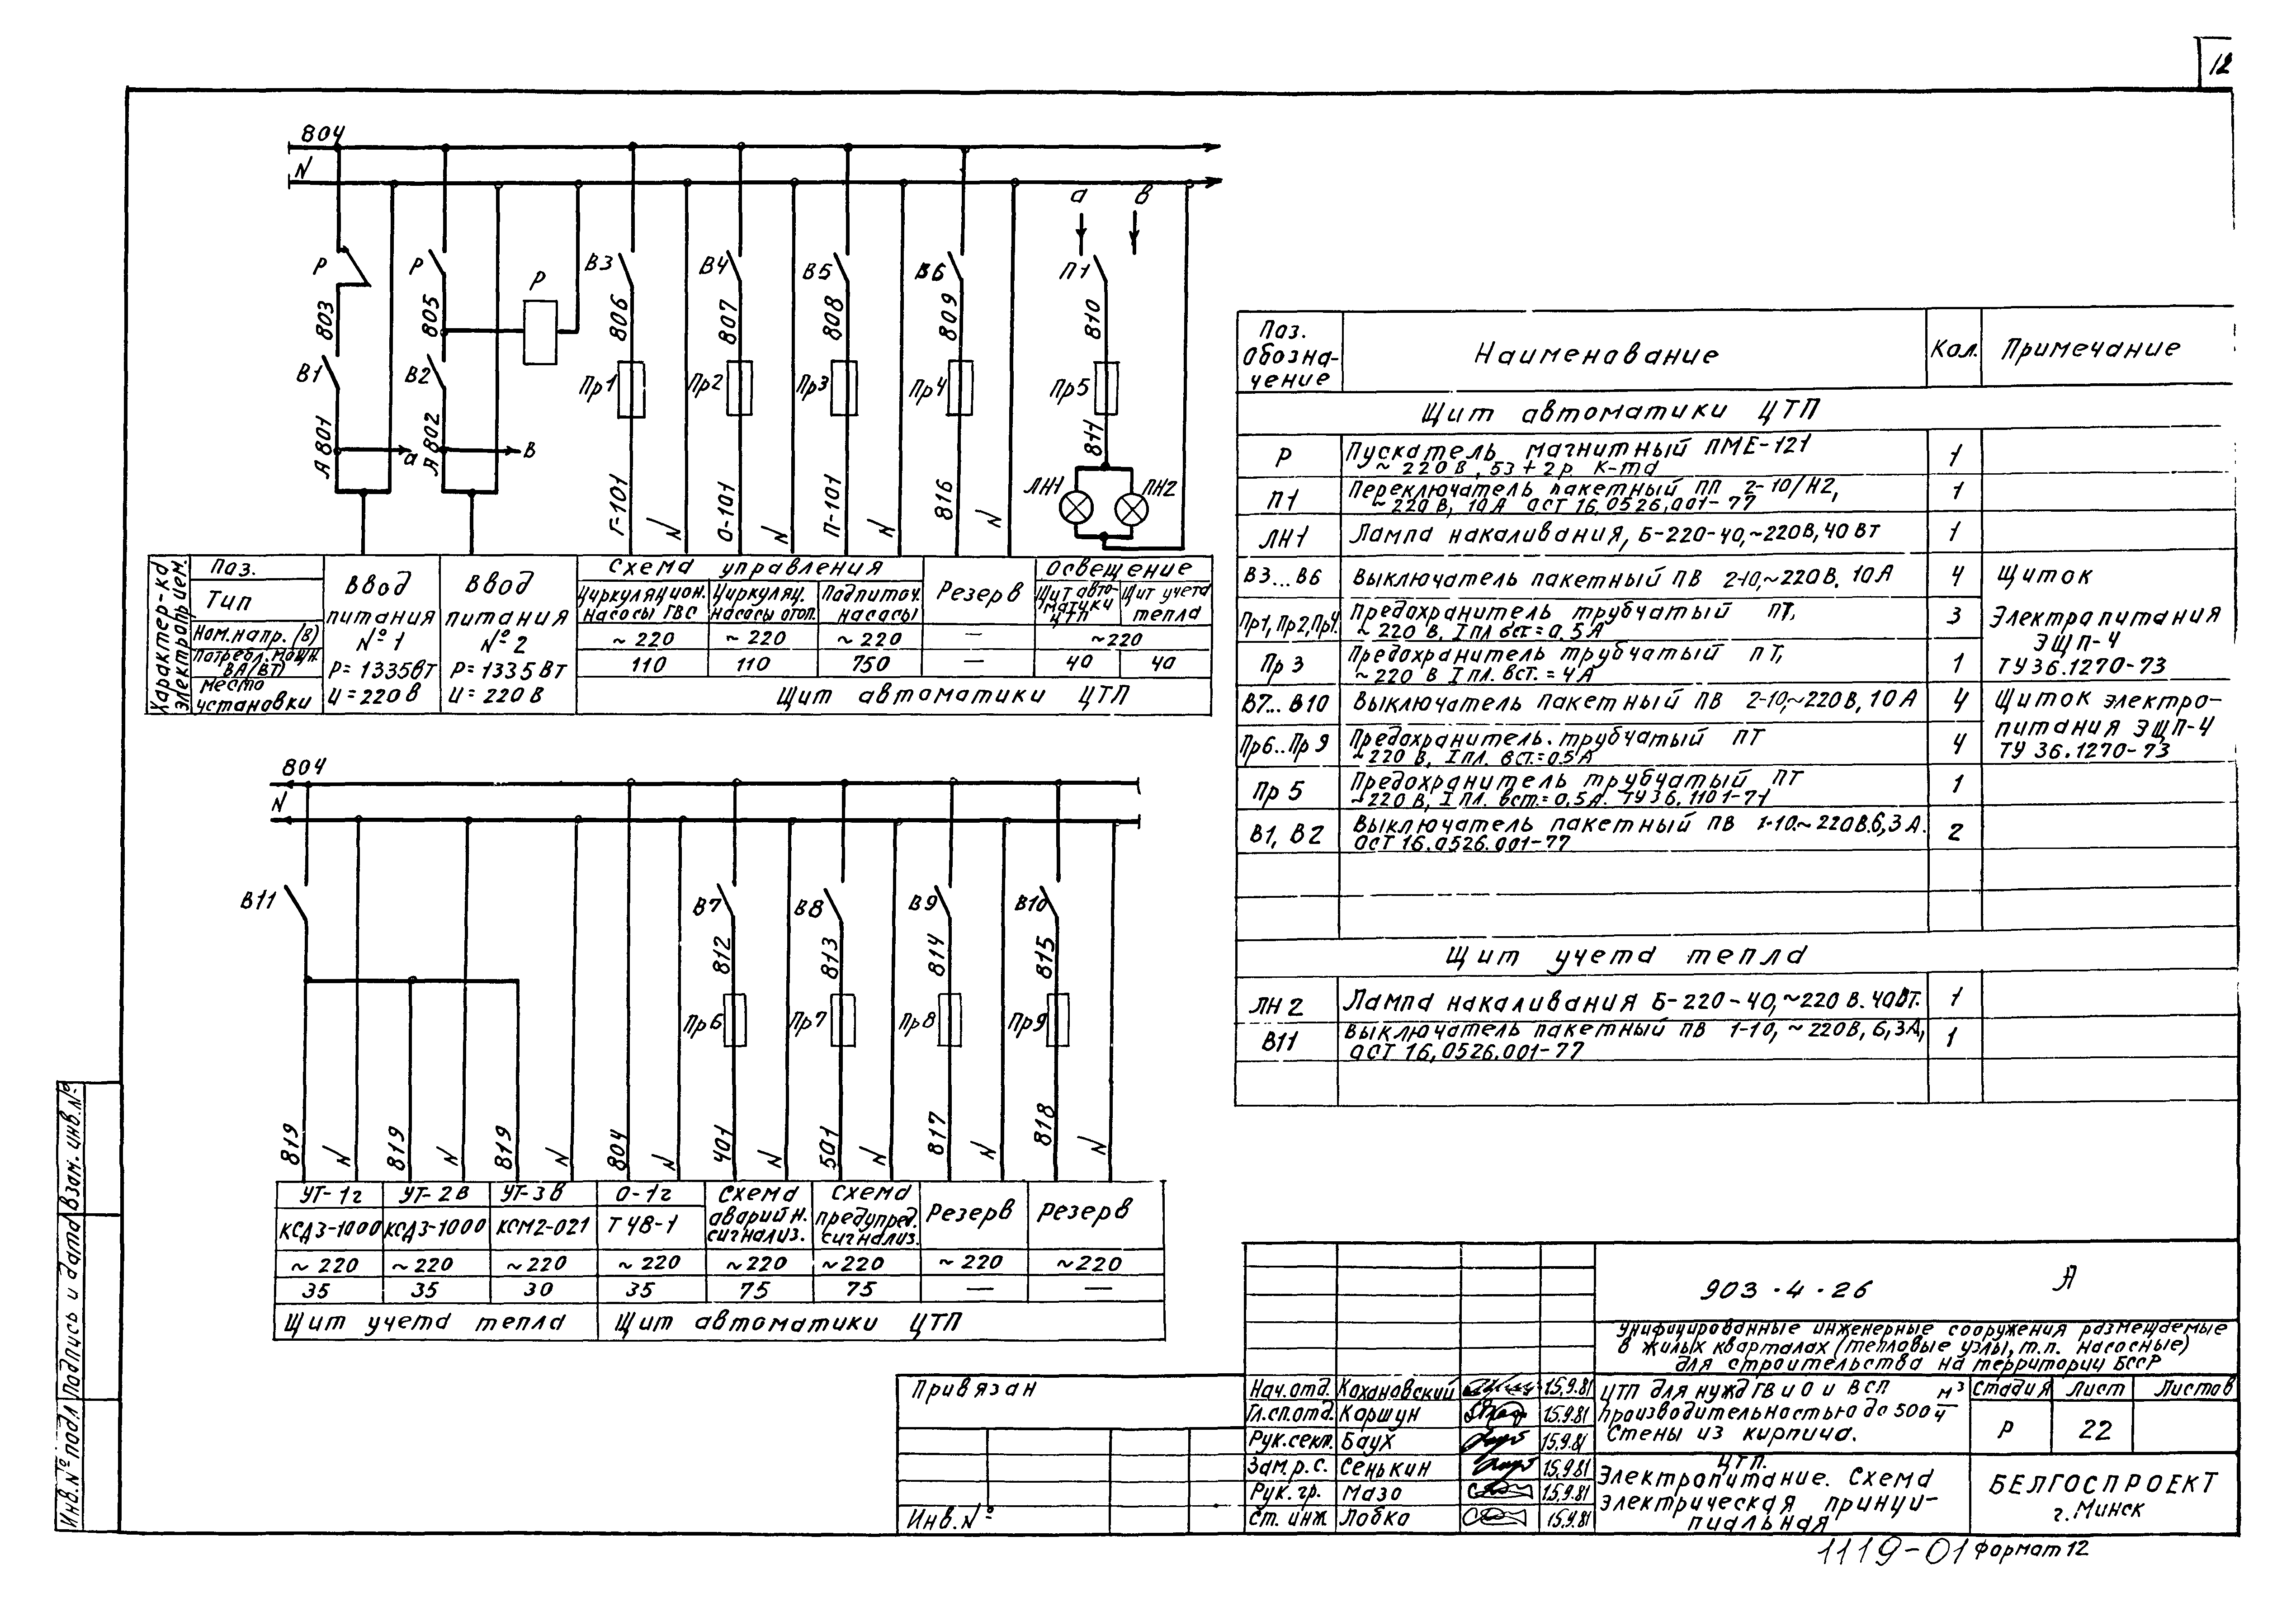 12
804
N
а
в
Р
Р
Р
В3
В4
В5
В6
П1
803
805
806
807
808
809
810
В1
В2
Пр1
Пр2
Пр3
Пр4
Пр5
А801
а
А802
в
811
ЛН1
ЛН2
Г-101
N
О-101
N
П-101
N
816
N
Характер-ка электроприем.
Поз.
Тип
Ном.напр. (В)
Потребл. мощн. ВА(ВТ)
место установки
Ввод питания № 1 Р=1335Вт U=220В
Ввод питания № 2 Р=1335 Вт U=220 В
Схема управления
Циркуляцион. насосы ГВС
Циркуляц. насосы отоп.
Подпиточ. насосы
Резерв
Освещение
Щит авто-матики ЦТП
Щит учета тепла
~220 ~220 ~220 — ~220
110 110 750 — 40 40
Щит автоматики ЦТП
804
N
В11
В7
В8
В9
В10
812
813
814
815
Пр6
Пр7
Пр8
Пр9
819 N 819 N 819 N 804 N 401 N 501 N 817 N 818 N
УТ-1г УТ-2в УТ-3в О-1г
КСД3-1000 КСД3-1000 КСМ2-021 Т48-1
Схема аварийн. сигнализ.
Схема предупред. сигнализ.
Резерв
Резерв
~220 ~220 ~220 ~220 ~220 ~220 ~220 ~220
35 35 30 35 75 75 — —
Щит учета тепла Щит автоматики ЦТП
Поз. обозна-чение Наименование Кол. Примечание
Щит автоматики ЦТП
Р Пускатель магнитный ПМЕ-121 1
~220В, 5з+2р к-та
П1 Переключатель пакетный ПП 2-10/Н2, 1
~220В, 10А ОСТ 16,0526,001-77
ЛН1 Лампа накаливания, Б-220-40,~220В,40Вт 1
В3...В6 Выключатель пакетный ПВ 2-10,~220В, 10А 4 Щиток
Пр1,Пр2,Пр4. Предохранитель трубчатый ПТ, 3 Электропитания
~220 В, Iпл вст=0.5А ЭЩП-4
Пр3 Предохранитель трубчатый ПТ, 1 ТУ36.1270-73
~220 В Iпл. вст.=4А
В7...В10 Выключатель пакетный ПВ 2-10,~220В, 10А 4 Щиток электро-
Пр6..Пр9 Предохранитель.трубчатый ПТ 4 питания ЭЩП-4
~220 В, Iпл. вст.=0,5А ТУ 36.1270-73
Пр5 Предохранитель трубчатый ПТ 1
~220В, Iпл. вст.=0,5А. ТУ36.1101-71
В1, В2 Выключатель пакетный ПВ 1-10.~220В.6,3А. 2
ОСТ 16.0526.001-77
Щит учета тепла
ЛН2 Лампа накаливания Б-220-40,~220 В.40Вт. 1
В11 Выключатель пакетный ПВ 1-10, ~220В, 6,3А, 1
ОСТ 16,0526.001-77
903.4.26 А
Унифицированные инженерные сооружения размещаемые
в жилых кварталах (тепловые узлы, т.п. насосные)
для строительства на территории БССР
Нач.отд. Кохановский 15.9.81
Гл.сп.отд. Коршун 15.9.81
Рук.сект. Баух 15.9.81
Зам.р.с. Сенькин 15.9.81
Рук.гр. Мазо 15.9.81
Ст. инж. Лобка 15.9.81
ЦТП для нужд ГВ и О и ВСП
производительностью до 500 м³/ч
Стены из кирпича.
Стадия Лист Листов
Р 22
ЦТП.
Электропитание. Схема
электрическая принци-
пиальная
БЕЛГОСПРОЕКТ
г.Минск
Привязан
Инв.№
Инв.№ подл Подпись и дата Взам.инв.№
1119-01 Формат 12